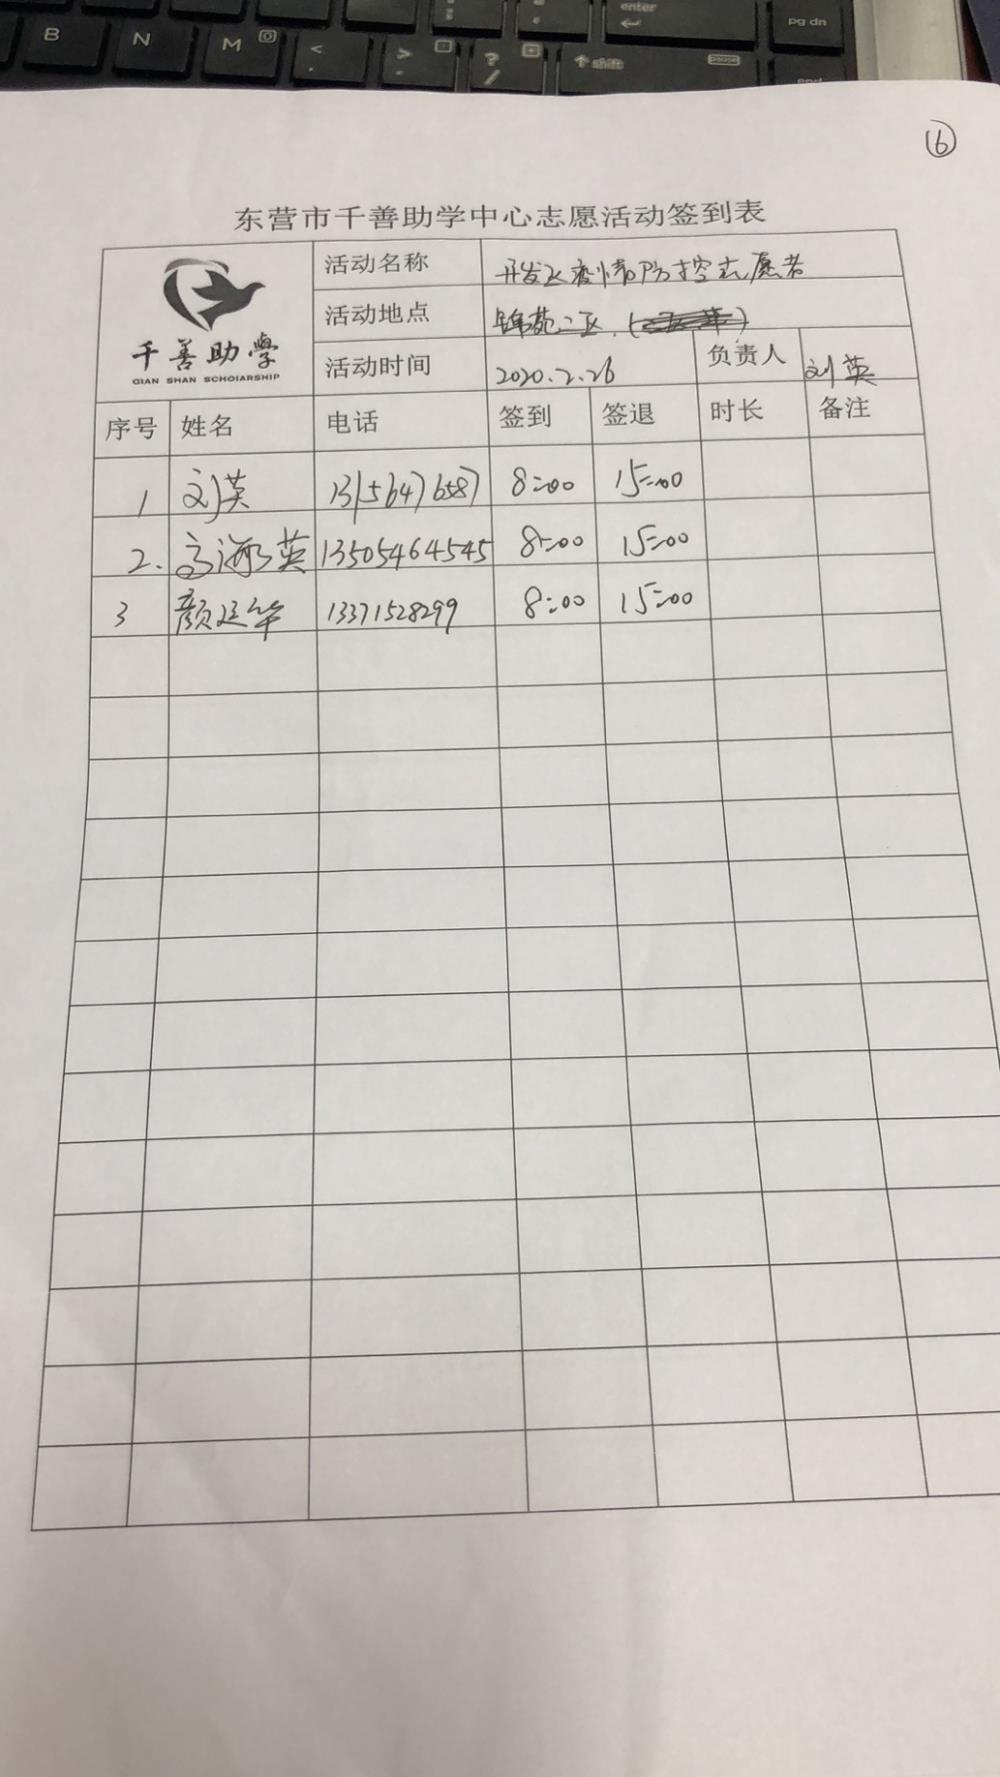 B N M < , > . ? / enter ↑ shift pause pg dn end
⑯
东营市千善助学中心志愿活动签到表
千善助學
QIAN SHAN SCHOIARSHIP
活动名称 开发区疫情防控志愿者
活动地点 锦苑二区
活动时间 2020.2.26 负责人 刘英
序号 姓名 电话 签到 签退 时长 备注
1 刘英 13156476587 8:00 15:00
2. 高海英 13505464545 8:00 15:00
3 颜廷华 13371528299 8:00 15:00